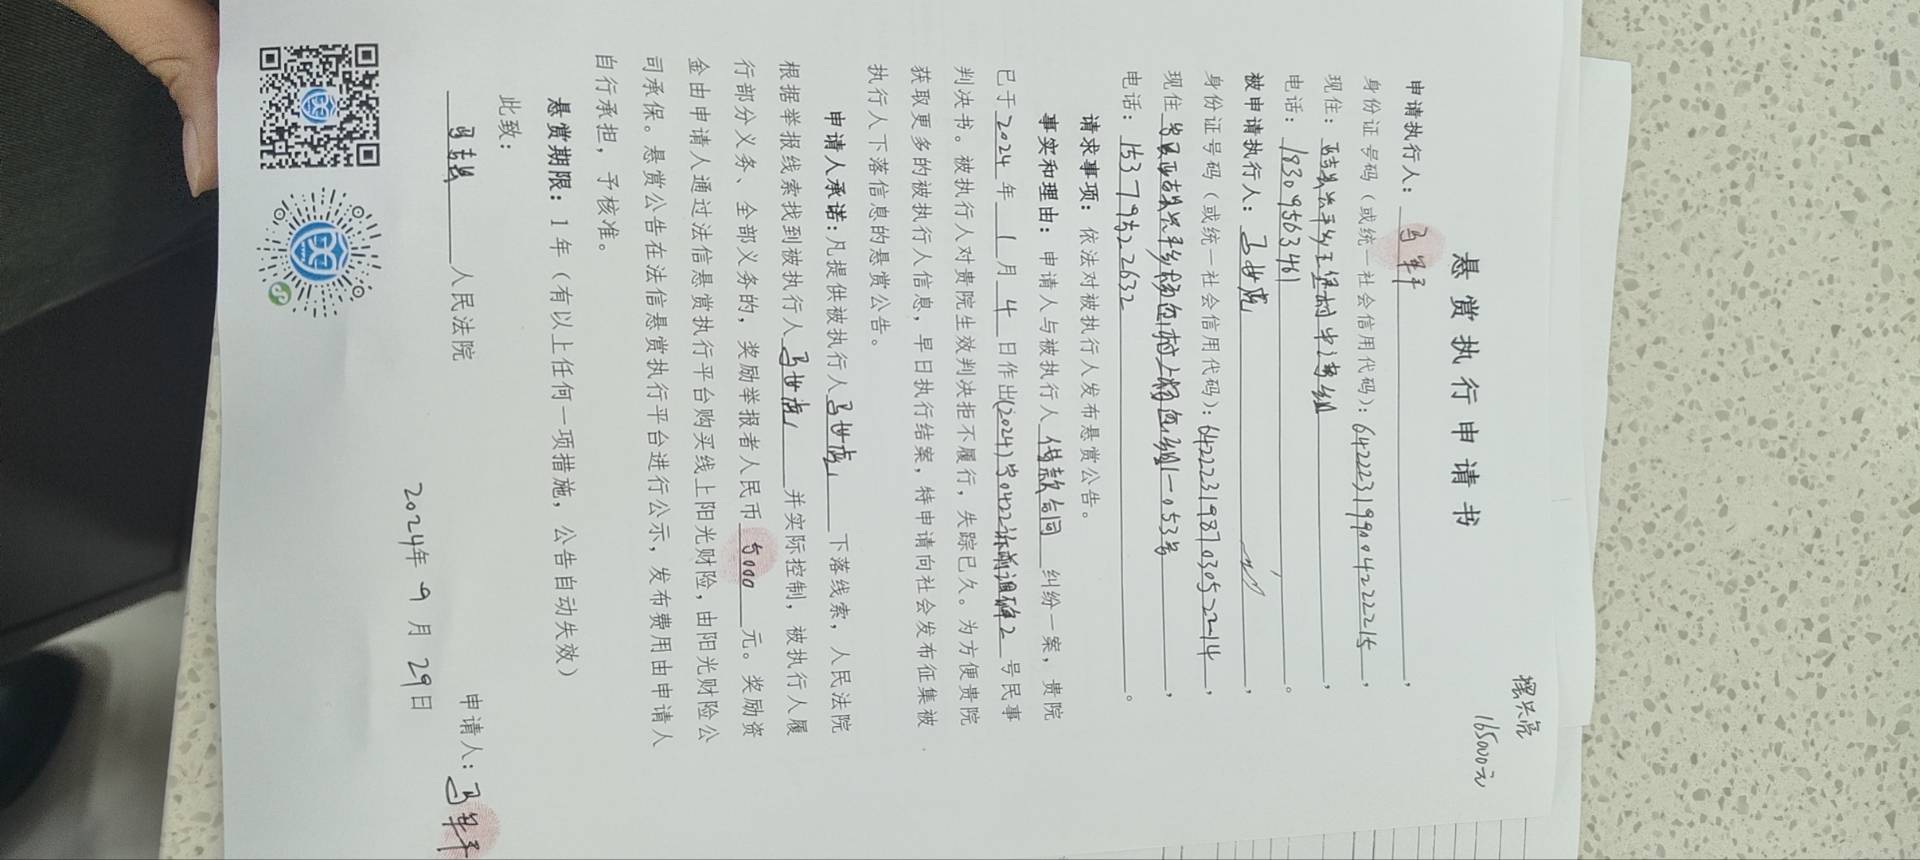 摆兴亮
165000元
悬赏执行申请书
申请执行人：马军平，
身份证号码（或统一社会信用代码）：642223199004222215，
现住：西吉县兴平乡王堡村
电话：18309563461。
被申请执行人：马世虎，
身份证号码（或统一社会信用代码）：642223198703052214，
现住 西吉县兴平乡 053号，
电话：15379522632。
请求事项：依法对被执行人发布悬赏公告。
事实和理由：申请人与被执行人 借款合同 纠纷一案，贵院
已于 2024 年 1 月 4 日作出(2024)宁0422诉前调确2号民事
判决书。被执行人对贵院生效判决拒不履行，失踪已久。为方便贵院
获取更多的被执行人信息，早日执行结案，特申请向社会发布征集被
执行人下落信息的悬赏公告。
申请人承诺：凡提供被执行人 马世虎 下落线索，人民法院
根据举报线索找到被执行人 马世虎 并实际控制，被执行人履
行部分义务、全部义务的，奖励举报者人民币 5000 元。奖励资
金由申请人通过法信悬赏执行平台购买线上阳光财险，由阳光财险公
司承保。悬赏公告在法信悬赏执行平台进行公示，发布费用由申请人
自行承担，予核准。
悬赏期限：1 年（有以上任何一项措施，公告自动失效）
此致：
人民法院
申请人：马军平
2024年 9 月 29日